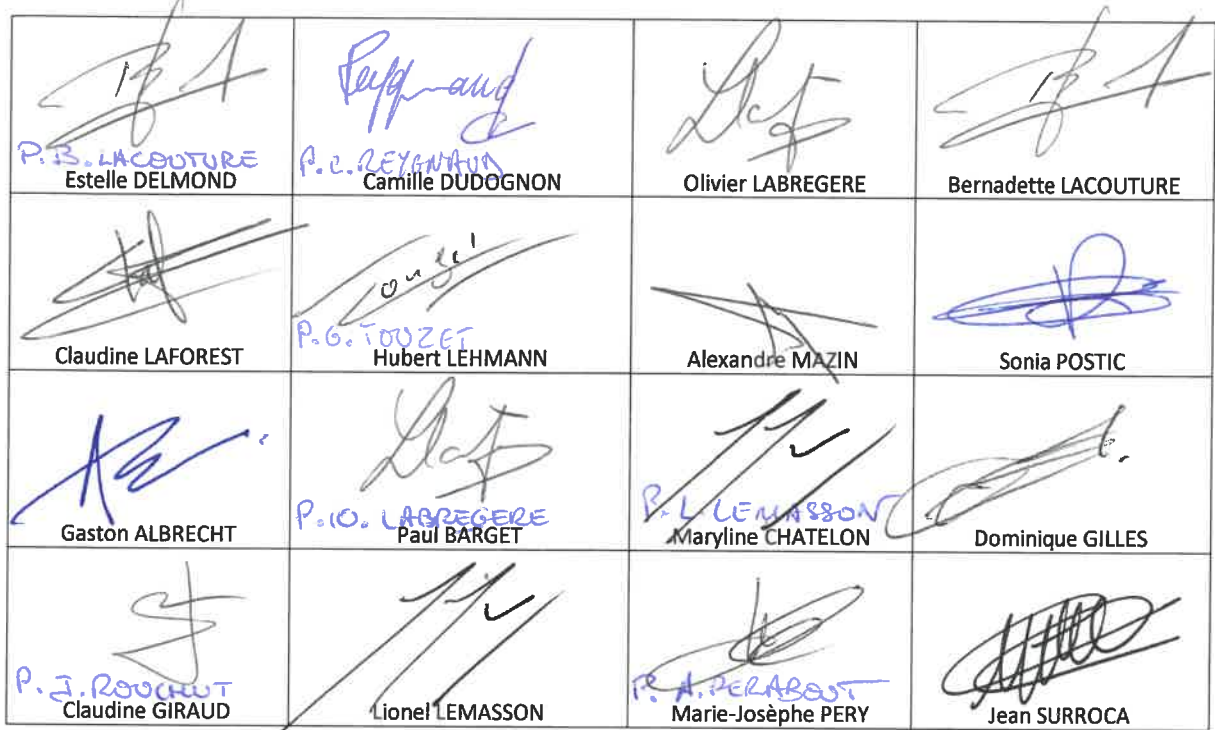 P.B. LACOUTURE
Estelle DELMOND
Reygnaud
P.C. REYGNAUD
Camille DUDOGNON
Olivier LABREGERE
Bernadette LACOUTURE
Claudine LAFOREST
Touzet
P.G. TOUZET
Hubert LEHMANN
Alexandre MAZIN
Sonia POSTIC
Gaston ALBRECHT
P.O. LABREGERE
Paul BARGET
P.L. LEMASSON
Maryline CHATELON
Dominique GILLES
P.J. ROUCHUT
Claudine GIRAUD
Lionel LEMASSON
P. A. PERABOUT
Marie-Josèphe PERY
Jean SURROCA